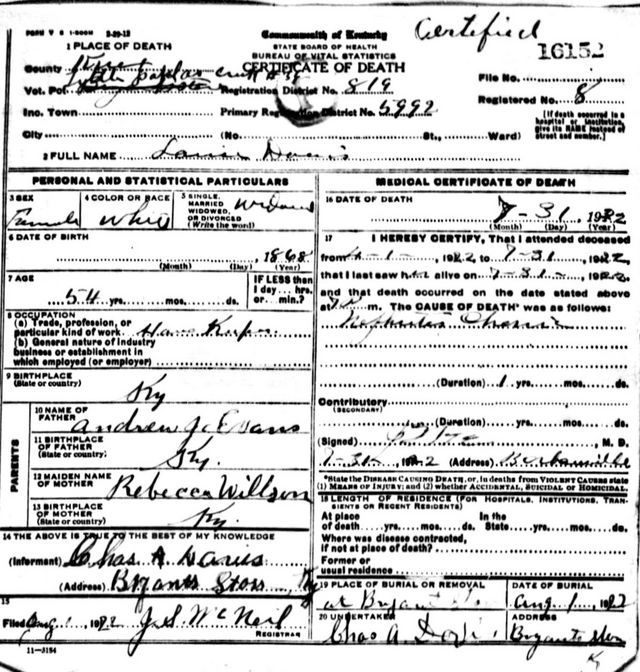 FORM V S 1-500M 3-29-12
Commonwealth of Kentucky
Certified
STATE BOARD OF HEALTH
16152
BUREAU OF VITAL STATISTICS
CERTIFICATE OF DEATH
1 PLACE OF DEATH
County
File No.
Vot. Pct.
Registration District No. 819
Registered No. 8
Inc. Town
Primary Registration District No. 5992
[If death occurred in a hospital or institution, give its NAME instead of street and number.]
City (No. St., Ward)
2 FULL NAME Davis
PERSONAL AND STATISTICAL PARTICULARS
3 SEX
Female
4 COLOR OR RACE
White
5 SINGLE,
MARRIED
WIDOWED,
OR DIVORCED
(Write the word)
Widowed
6 DATE OF BIRTH
1868
(Month) (Day) (Year)
7 AGE
54 yrs. mos. ds.
IF LESS than
1 day... hrs.
or ... min.?
8 OCCUPATION
(a) Trade, profession, or
particular kind of work
(b) General nature of industry
business or establishment in
which employed (or employer)
9 BIRTHPLACE
(State or country)
Ky
PARENTS
10 NAME OF
FATHER
Andrew J. Evans
11 BIRTHPLACE
OF FATHER
(State or country)
Ky.
12 MAIDEN NAME
OF MOTHER
Rebecca Willson
13 BIRTHPLACE
OF MOTHER
(State or country)
Ky.
14 THE ABOVE IS TRUE TO THE BEST OF MY KNOWLEDGE
(Informant) Chas A Davis
(Address) Bryants Store, Ky
15
Filed Aug 1, 1922 J. S. McNeil
REGISTRAR
11-3184
MEDICAL CERTIFICATE OF DEATH
16 DATE OF DEATH
7-31 1922
(Month) (Day) (Year)
17 I HEREBY CERTIFY, That I attended deceased
from -1-, 1922 to 7-31-, 1922,
that I last saw her alive on 7-31-, 1922,
and that death occurred on the date stated above
at m. The CAUSE OF DEATH* was as follows:
Nephritis Chronic
(Duration) 1 yrs. mos. ds.
Contributory
(SECONDARY)
(Duration) yrs. mos. ds.
(Signed) , M. D.
7-31-, 1922 (Address) Barbourville
*State the DISEASE CAUSING DEATH, or, in deaths from VIOLENT CAUSES state
(1) MEANS OF INJURY; and (2) whether ACCIDENTAL, SUICIDAL OR HOMICIDAL.
18 LENGTH OF RESIDENCE (FOR HOSPITALS, INSTITUTIONS, TRAN-
SIENTS OR RECENT RESIDENTS)
At place
of death yrs. mos. ds.
In the
State, yrs. mos. ds.
Where was disease contracted,
if not at place of death?
Former or
usual residence
19 PLACE OF BURIAL OR REMOVAL
at Bryant
DATE OF BURIAL
Aug 1, 1922
20 UNDERTAKER
Chas A. Davis
ADDRESS
Bryants Store